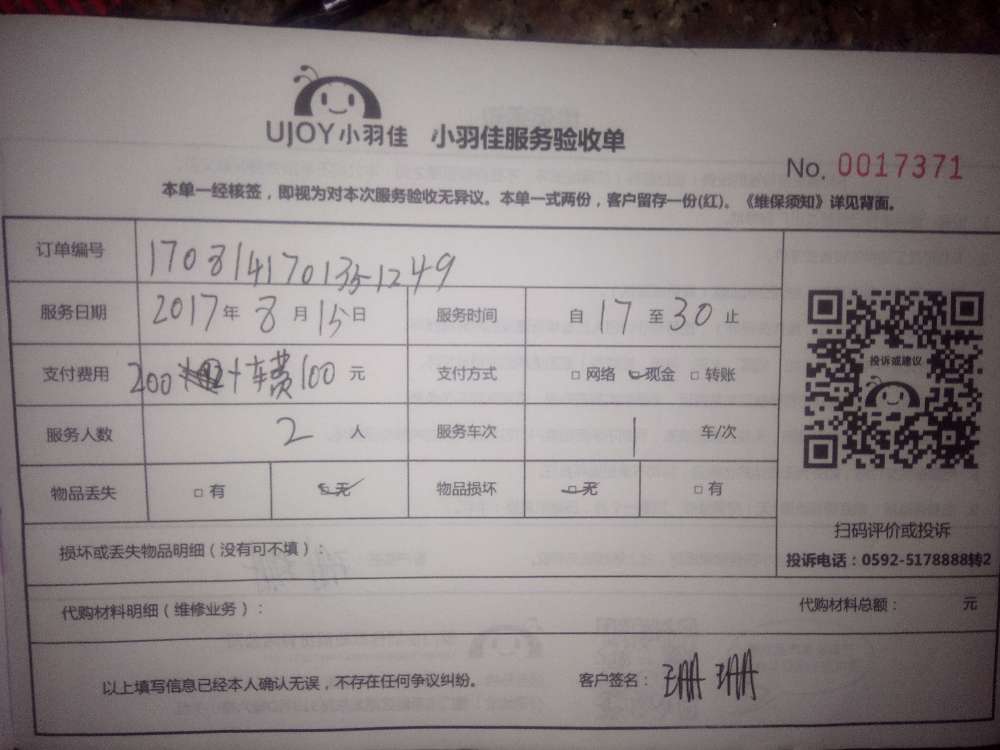 UJOY小羽佳 小羽佳服务验收单
No. 0017371
本单一经核签，即视为对本次服务验收无异议。本单一式两份，客户留存一份(红)。《维保须知》详见背面。
订单编号 1708141701351249
服务日期 2017年8月15日 服务时间 自17至30止
投诉或建议
支付费用 200 +车费100元 支付方式 □网络 □现金 □转账
服务人数 2人 服务车次 1车/次
物品丢失 □有 □无 物品损坏 □无 □有
扫码评价或投诉
损坏或丢失物品明细（没有可不填）：
投诉电话：0592-5178888转2
代购材料明细（维修业务）： 代购材料总额： 元
以上填写信息已经本人确认无误，不存在任何争议纠纷。 客户签名：珊珊